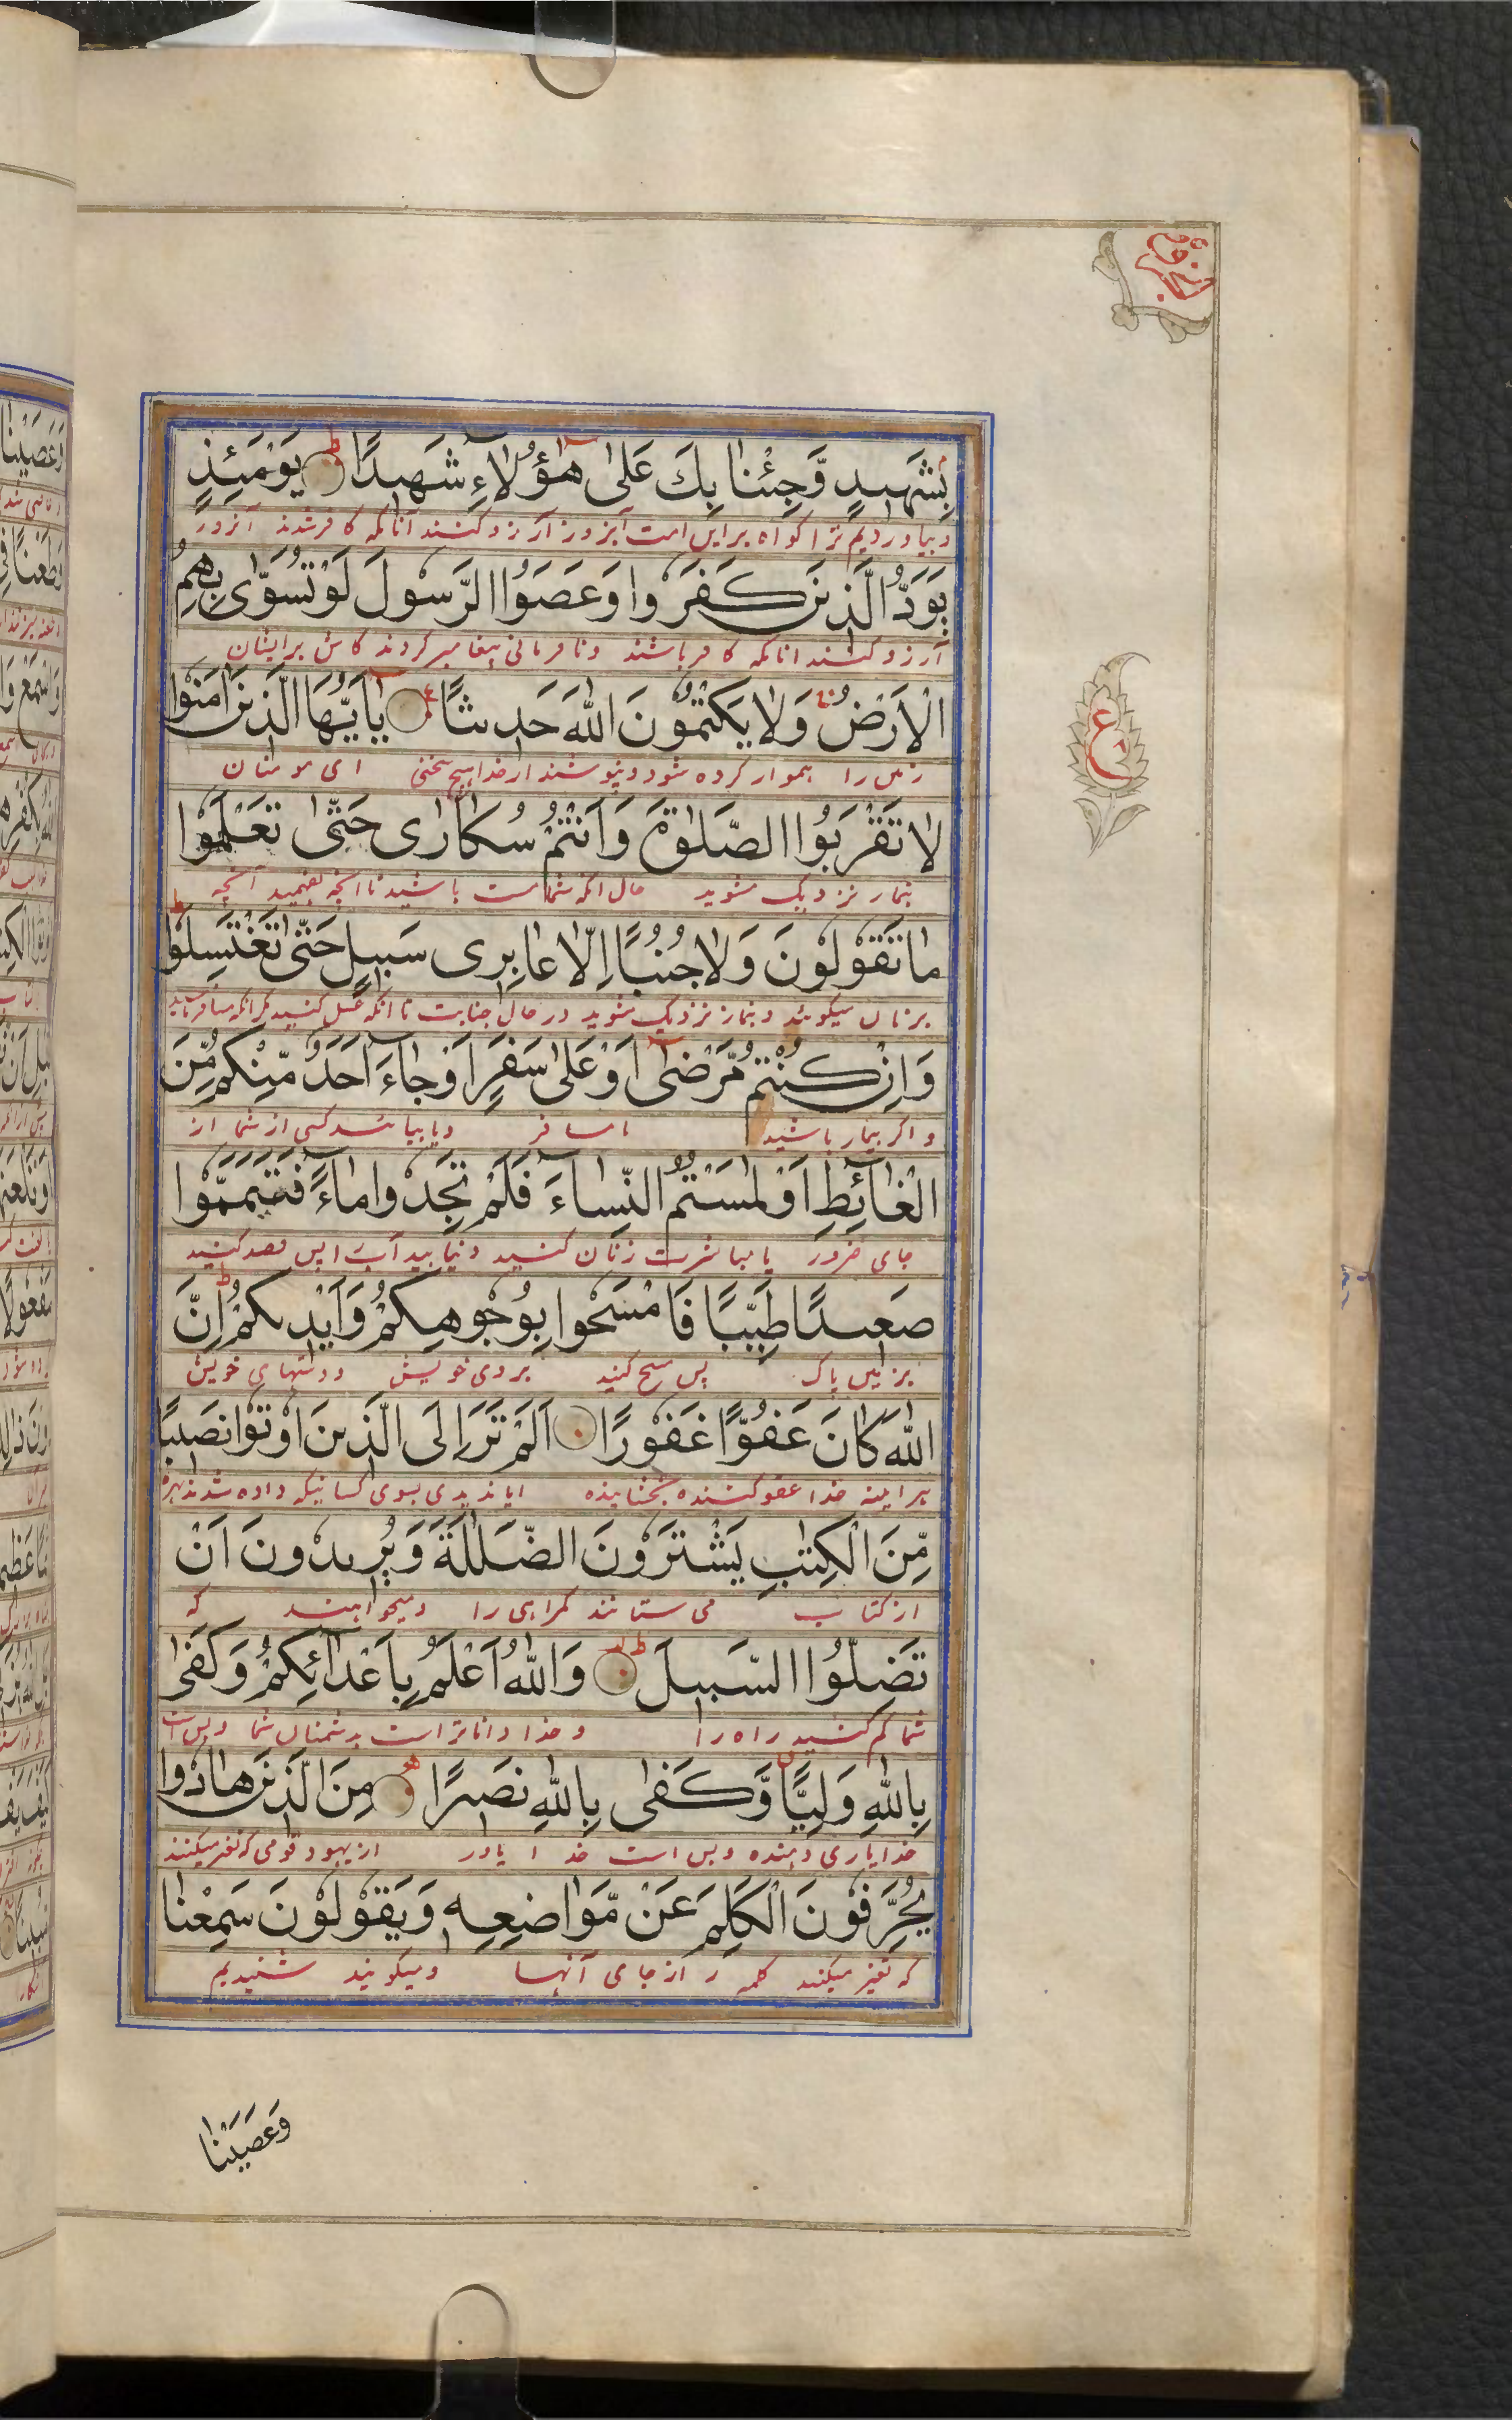 بِشَهِيدٍ وَّجِئْنَا بِكَ عَلٰى هٰٓؤُلَاءِ شَهِيدًا يَوْمَئِذٍ
و بیاوردیم ترا گواه براین امت آنروز آرزو کنند آنانکه کافر شدند آنروز
يَوَدُّ الَّذِينَ كَفَرُوا وَعَصَوُا الرَّسُولَ لَوْ تُسَوّٰى بِهِمُ
آرزو کنند انانکه کافر باشند و نافرمانی پیغامبر کردند کاش برایشان
الْاَرْضُ وَلَا يَكْتُمُونَ اللّٰهَ حَدِيثًا يٰٓاَيُّهَا الَّذِينَ اٰمَنُوا
زمین را هموار کرده شود و نپوشند از خدا هیچ سخنی ای مومنان
لَا تَقْرَبُوا الصَّلٰوةَ وَاَنْتُمْ سُكَارٰى حَتّٰى تَعْلَمُوا
بنماز نزدیک مشوید حال انکه شما مست باشید تا انکه بفهمید آنچه
مَا تَقُولُونَ وَلَا جُنُبًا اِلَّا عَابِرِى سَبِيلٍ حَتّٰى تَغْتَسِلُوا
بزبان میگویند و بنماز نزدیک مشوید در حال جنابت تا انکه غسل کنید مگر انکه مسافر باشید
وَاِنْ كُنْتُمْ مَّرْضٰٓى اَوْ عَلٰى سَفَرٍ اَوْ جَآءَ اَحَدٌ مِّنْكُمْ مِّنَ
و اگر بیمار باشید یا مسافر و یا بیاید کسی از شما از
الْغَآئِطِ اَوْ لٰمَسْتُمُ النِّسَآءَ فَلَمْ تَجِدُوا مَآءً فَتَيَمَّمُوا
جای ضرور یا مباشرت زنان کنید و نیابید آب پس قصد کنید
صَعِيدًا طَيِّبًا فَامْسَحُوا بِوُجُوهِكُمْ وَاَيْدِيكُمْ اِنَّ
بزمین پاک پس مسح کنید بروی خویش و دستهای خویش
اللّٰهَ كَانَ عَفُوًّا غَفُورًا اَلَمْ تَرَ اِلَى الَّذِينَ اُوتُوا نَصِيبًا
هر اینه خدا عفو کننده بخشاینده ایا ندیدی بسوی کسانیکه داده شدند بهره
مِّنَ الْكِتٰبِ يَشْتَرُونَ الضَّلٰلَةَ وَيُرِيدُونَ اَنْ
از کتاب می ستانند گمراهی را و میخواهند که
تَضِلُّوا السَّبِيلَ وَاللّٰهُ اَعْلَمُ بِاَعْدَآئِكُمْ وَكَفٰى
شما گم کنید راه را و خدا داناتر است بدشمنان شما و بس است
بِاللّٰهِ وَلِيًّا وَّكَفٰى بِاللّٰهِ نَصِيرًا مِنَ الَّذِينَ هَادُوا
خدا یاری دهنده و بس است خدا یاور از یهود قومی که تغیر میکنند
يُحَرِّفُونَ الْكَلِمَ عَنْ مَّوَاضِعِهِ وَيَقُولُونَ سَمِعْنَا
که تغیر میکنند کلمه را از جای آنها و میگویند شنیدیم
وَعَصَيْنَا
ع